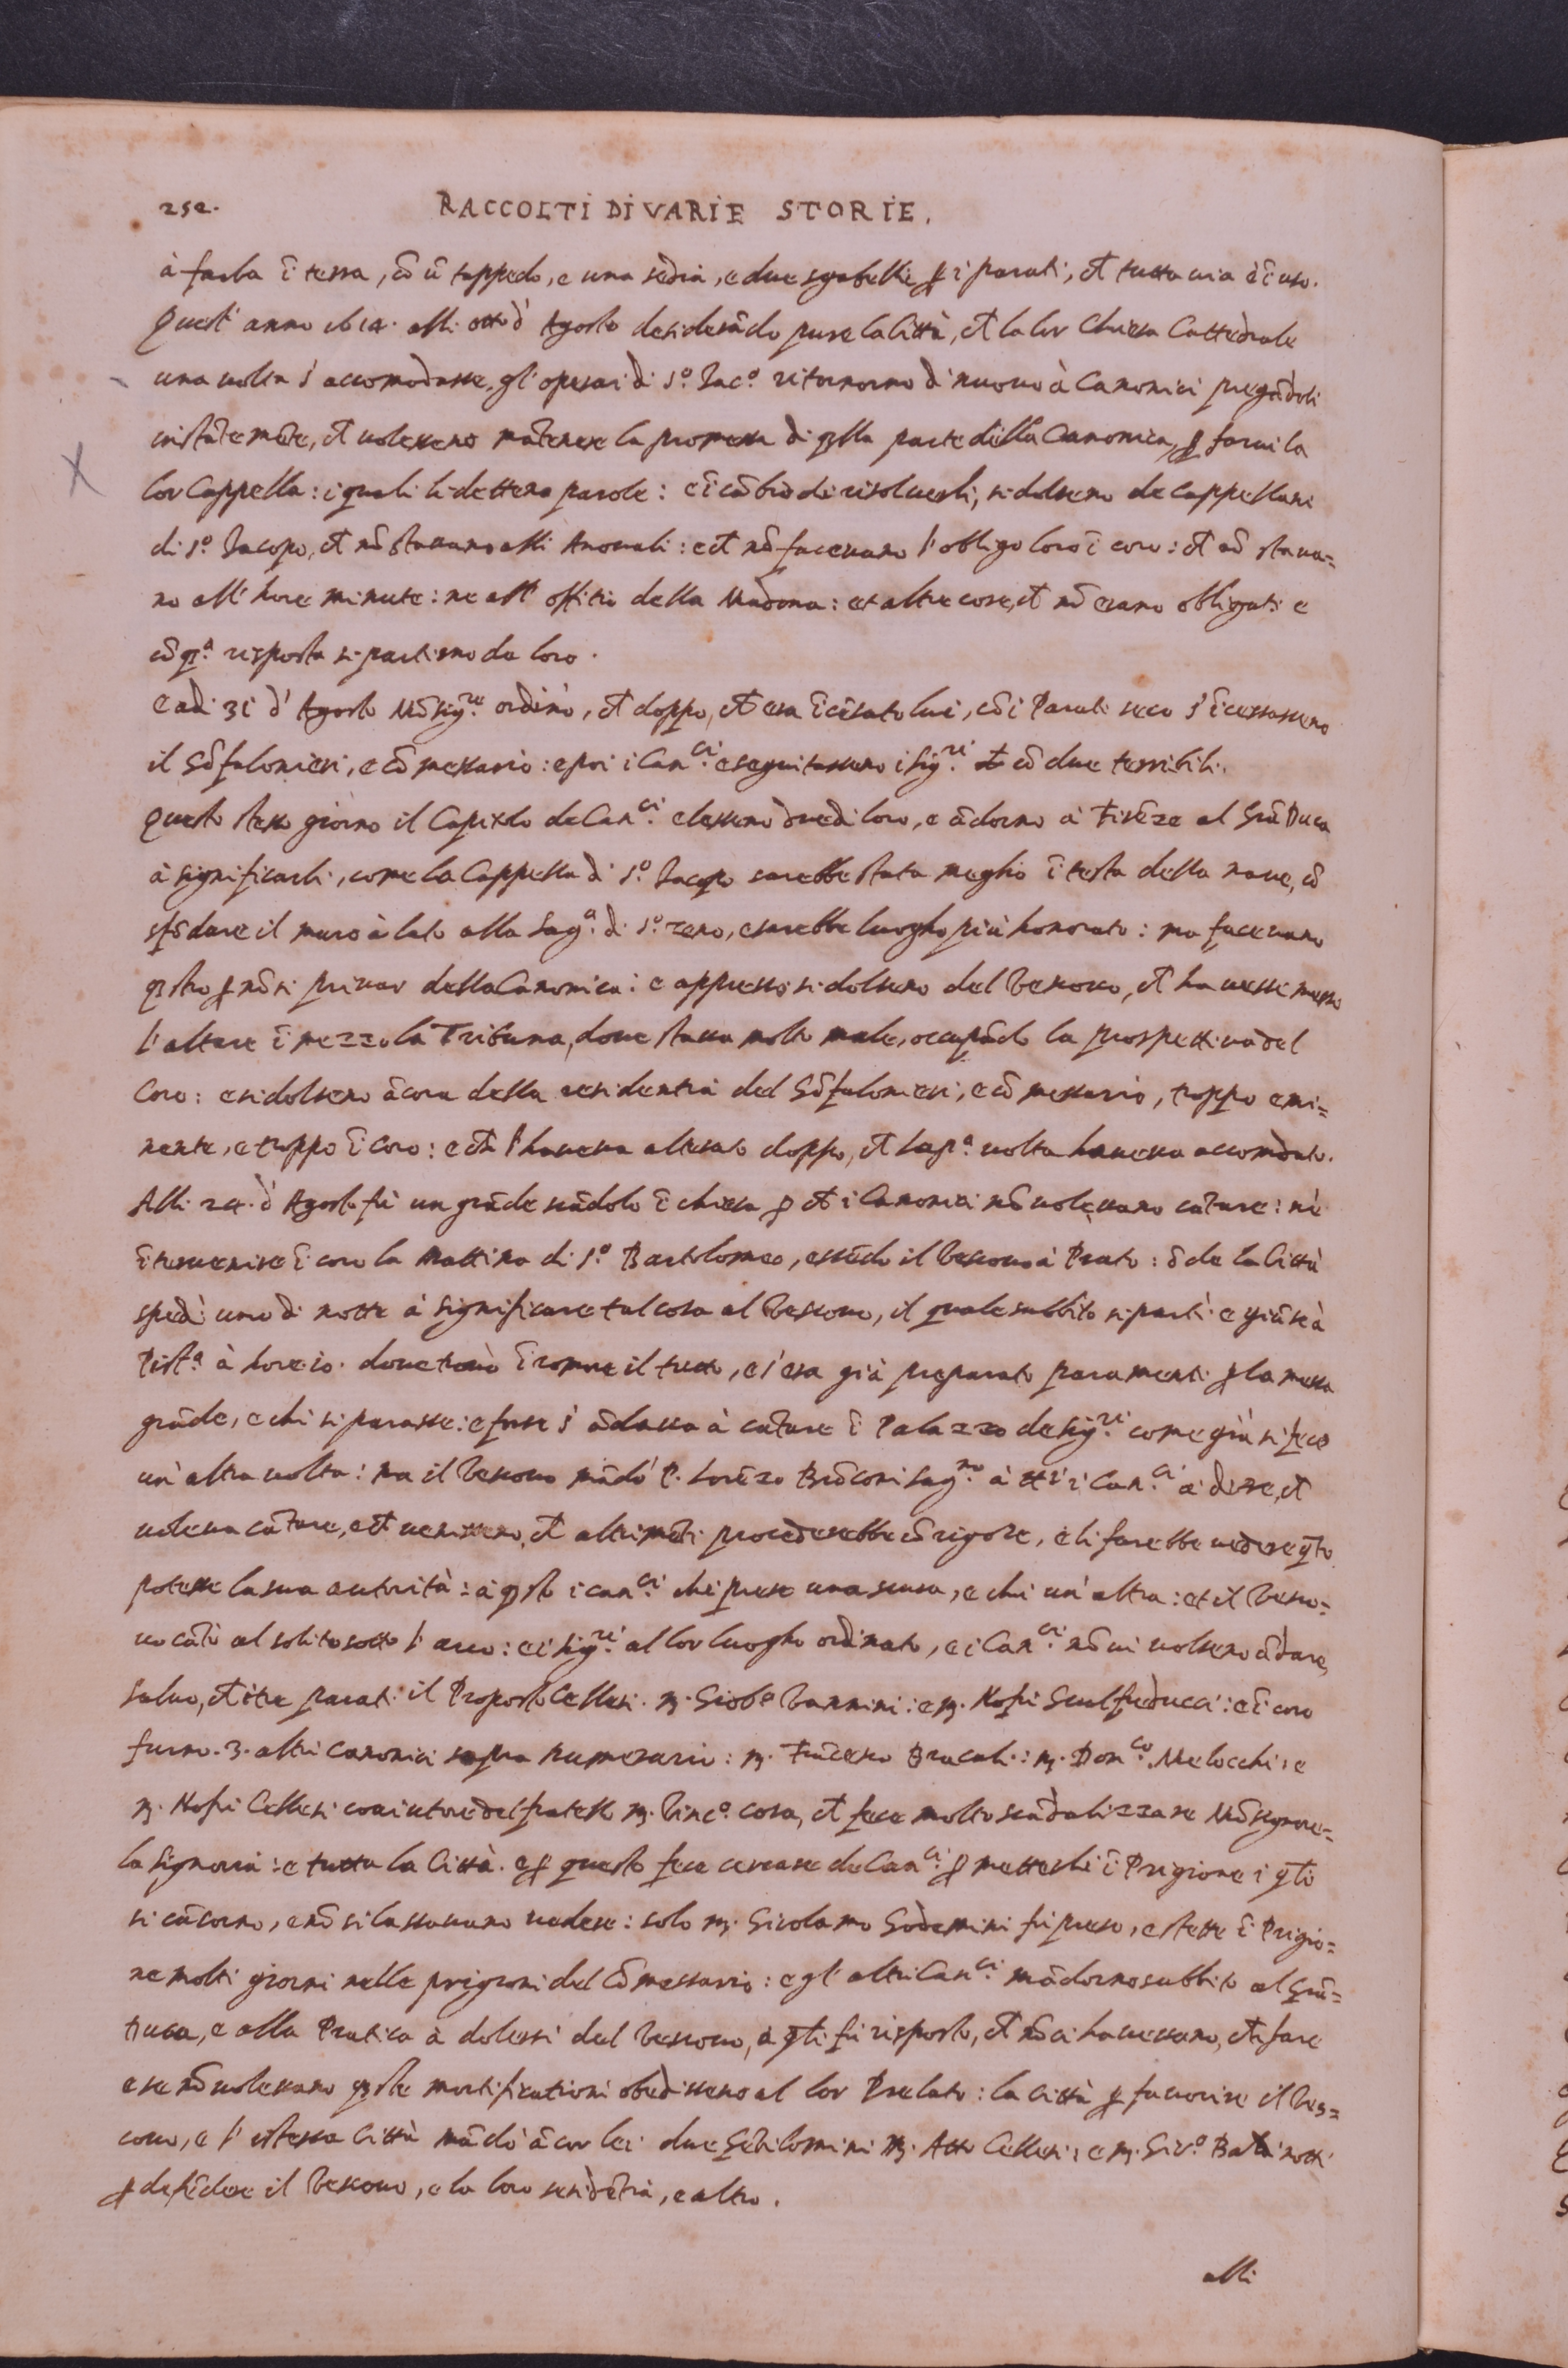 252. RACCOLTI DI VARIE STORIE.
à farla ĩ terra, cõ ũ tappedo, e una sedia, e due sgabelli ꝑ i parati, et tutta via è ĩ uso.
Quest' anno 1614. alli otto d' Agosto desiderãdo pure la Città, et la lor Chiesa Cattedrale
una uolta s' accomodasse, gl' operai di S.º Jac.º ritornorno di nuouo à Canonici pregãdoli
instãtemẽte, et uolesseno mãtenere la promessa di q̃lla parte della Canonica, ꝑ farui la
lor Cappella: i quali li dettero parole: e ĩ cãbio di risoluerli, si dolseno de Cappellani
di S.º Jacopo, et nõ stauano alli Anouali: e et nõ faceuano l' obligo loro ĩ coro: et nõ staua=
no all' hore minute: ne all' offitio della Madona: et altre cose, et nõ erano obligati e
cõ q.ª risposta si partirno da loro.
E adi 31 d' Agosto Mõsig.re ordinò, et doppo, et era ĩcẽsato lui, cõ i Parati seco s' ĩcensasseno
il Gõfalonieri, e cõmessario: e poi i Can.ci e seguitasseno i Sig.ri et cõ due terribili.
Questo stesso giorno il Capitolo de Can.ci elesseno due di loro, e ãdorno à Firẽze al Grã Duca
à significarli, come la Cappella di S.º Jacopo sarebbe stata meglio ĩ testa della naue, cõ
sfõdare il muro à lato alla Sag.ª di S.º Zeno, e sarebbe luogho più honorato: ma faceuano
q̃sto ꝑ nõ si priuar della Canonica: e appresso si dolseno del Vescouo, et hauesse messo
l' altare ĩ mezzo la Tribuna, doue staua molto male, occupãdo la prospettiua del
Coro: e si dolseno ãcora della residentia del Gõfalonieri, e cõmessario, troppo emi=
nente, e troppo ĩ coro: e et l' haueua alterato doppo, et la pr.ª uolta haueua accomodato.
Alli 24. d' Agosto fù un grãde scãdolo ĩ chiesa ꝑ et i Canonici nõ uoleuano cãtare: nè
ĩteruenire ĩ coro la mattina di S.º Bartolomeo, essẽdo il Vescouo à Prato: õde la Città
spedì uno di notte à significare tal cosa al Vescouo, il quale subbito si partì e giũse à
Pist.ª à hore 10. doue trouò ĩ romore il tutto, e s' era già preparato paramenti ꝑ la messa
grãde, e chi si parasse: e forse s' ãdaua à cãtare ĩ Palazzo de Sig.ri come già si fece
un' altra uolta: ma il Vescouo mãdò P. Lorẽzo Brõconi Sag.no à tt.i i Can.ci à dire, et
uoleua cãtare, e et uenisseno, et altrimẽti procederebbe cõ rigore, e li farebbe uedere q̃to
potesse la sua autorità: à q̃sto i can.ci chi prese una scusa, e chi un' altra: et il Vesco=
uo cãtò al solito sotto l' arco: e i Sig.ri al lor luogho ordinato, e i Can.ci nõ ui uolseno ãdare,
saluo, et i tre parati il Proposto Cellesi. m. Giob.ª Vannini: e m. Nofri Gualfreducci: e ĩ coro
furno. 3. altri canonici sopra numerario: m. Frãcesco Bracali: m. Dom.co Melocchi: e
m. Nofri Cellesi coaiutore del fratello m. Vinc.º cosa, et fece molto scãdalizzare Mõsignore=
la Signoria: e tutta la Città. e ꝑ questo fece cercare de Can.ci ꝑ metterli ĩ Prigione i q̃li
si cãsorno, e nõ si lassauano uedere: solo m. Girolamo Godemini fù preso, e stette ĩ Prigio=
ne molti giorni nelle prigioni del Cõmessario: e gl' altri Can.ci mãdorno subbito al Grã=
Duca, e alla Pratica à dolersi del Vescouo, à q̃li fù risposto, et nõ ci haueuano, et fare
e se nõ uoleuano q̃ste mortificationi obedisseno al lor Prelato: la città ꝑ fauorire il Ves=
couo, e l' istessa Città mãdò ãcor lei due Gẽtilomini m. Atto Cellesi: e m. Gir.º Baldinotti
ꝑ defẽdere il Vescouo, e la loro residẽtia, e altro.
alli